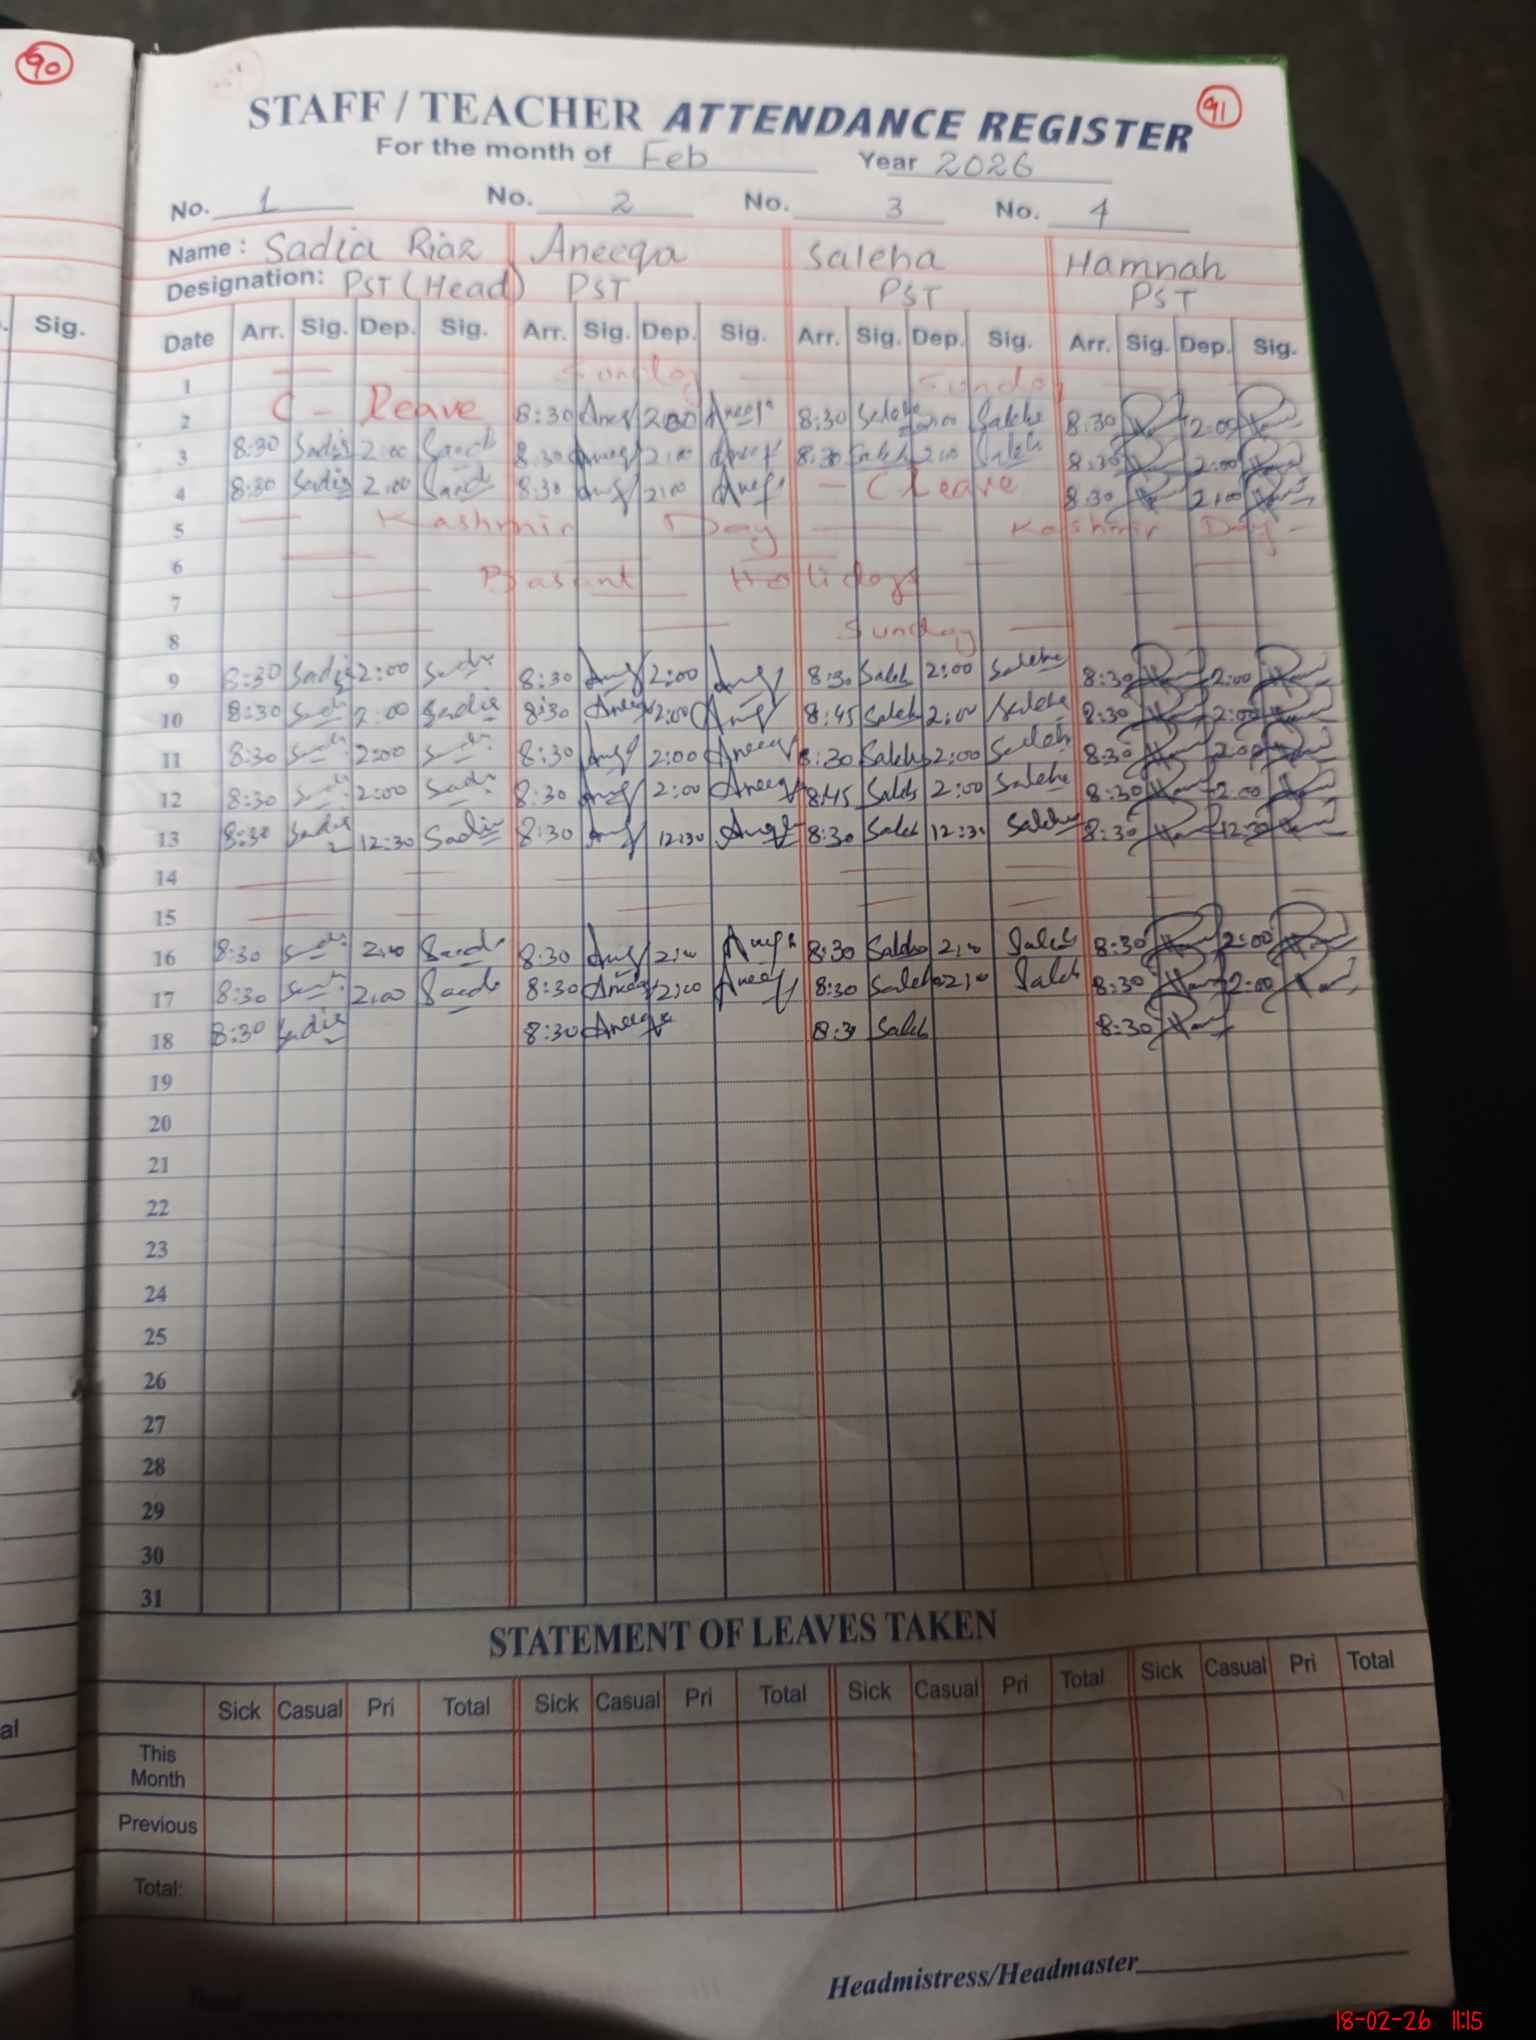 90
91
STAFF / TEACHER ATTENDANCE REGISTER
For the month of Feb Year 2026
No. 1 No. 2 No. 3 No. 4
Name: Sadia Riaz Aneeqa Saleha Hamnah
Designation: PST (Head) PST PST PST
Sig.
Date Arr. Sig. Dep. Sig. Arr. Sig. Dep. Sig. Arr. Sig. Dep. Sig. Arr. Sig. Dep. Sig.
1 Sunday Sunday
2 C - Leave 8:30 2:00 8:30 2:00 Saleha 8:30 2:00
3 8:30 Sadia 2:00 8:30 2:00 8:30 Saleh 2:00 Saleh 8:30 2:00
4 8:30 Sadia 2:00 8:30 2:00 - C Leave 8:30 2:00
5 Kashmir Day Kashmir Day
6
Basant Holidays
7
8 Sunday
9 8:30 Sadia 2:00 Sadia 8:30 2:00 8:30 Saleh 2:00 Saleha 8:30 2:00
10 8:30 2:00 Sadia 8:30 Aneeqa 2:00 8:45 Saleh 2:00 Saleha 8:30 2:00
11 8:30 2:00 8:30 2:00 Aneeqa 8:30 Saleh 2:00 Saleh 8:30 2:00
12 8:30 2:00 Sadia 8:30 2:00 Aneeqa 8:45 Saleh 2:00 Saleha 8:30 2:00
13 8:30 Sadia 12:30 Sadia 8:30 12:30 8:30 Saleh 12:30 Saleha 8:30 12:30
14
15
16 8:30 2:00 8:30 2:00 8:30 Saleha 2:00 Saleh 8:30 2:00
17 8:30 2:00 8:30 Aneeqa 2:00 Aneeqa 8:30 Saleha 2:00 Saleh 8:30 2:00
18 8:30 Sadia 8:30 Aneeqa 8:30 Saleh 8:30
19
20
21
22
23
24
25
26
27
28
29
30
31
STATEMENT OF LEAVES TAKEN
Sick Casual Pri Total Sick Casual Pri Total Sick Casual Pri Total Sick Casual Pri Total
al
This
Month
Previous
Total:
Headmistress/Headmaster
18-02-26 11:15